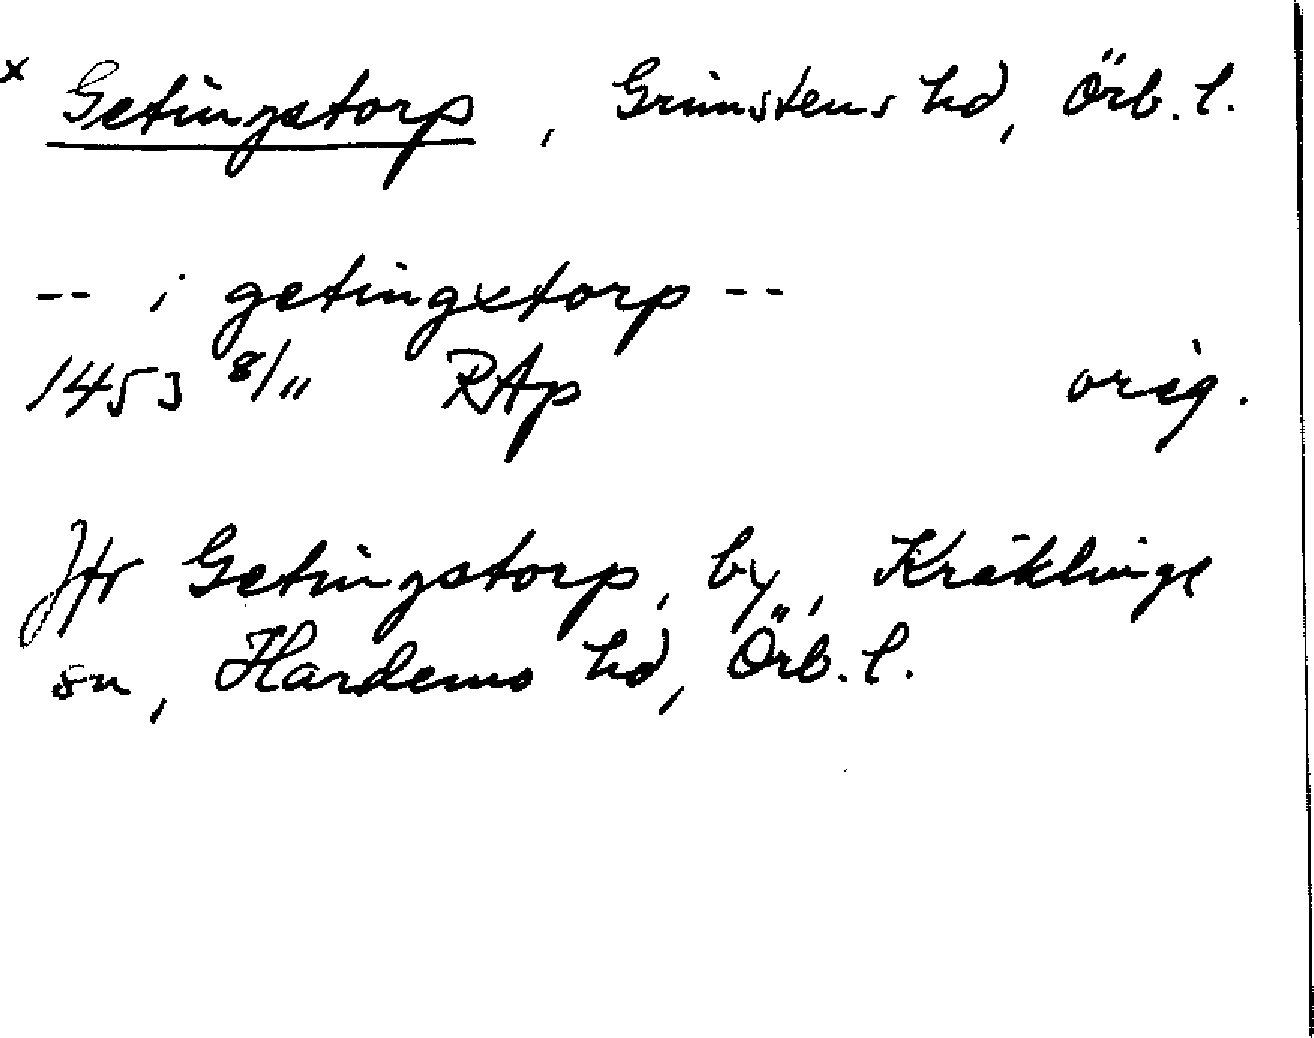 x Getingstorp, Grimstens hd, Örb. l.
-- i getingxtorp --
1453 8/11 RAp orig.
Jfr Getingstorp, by, Kräklinge
sn, Hardemo hd, Örb. l.